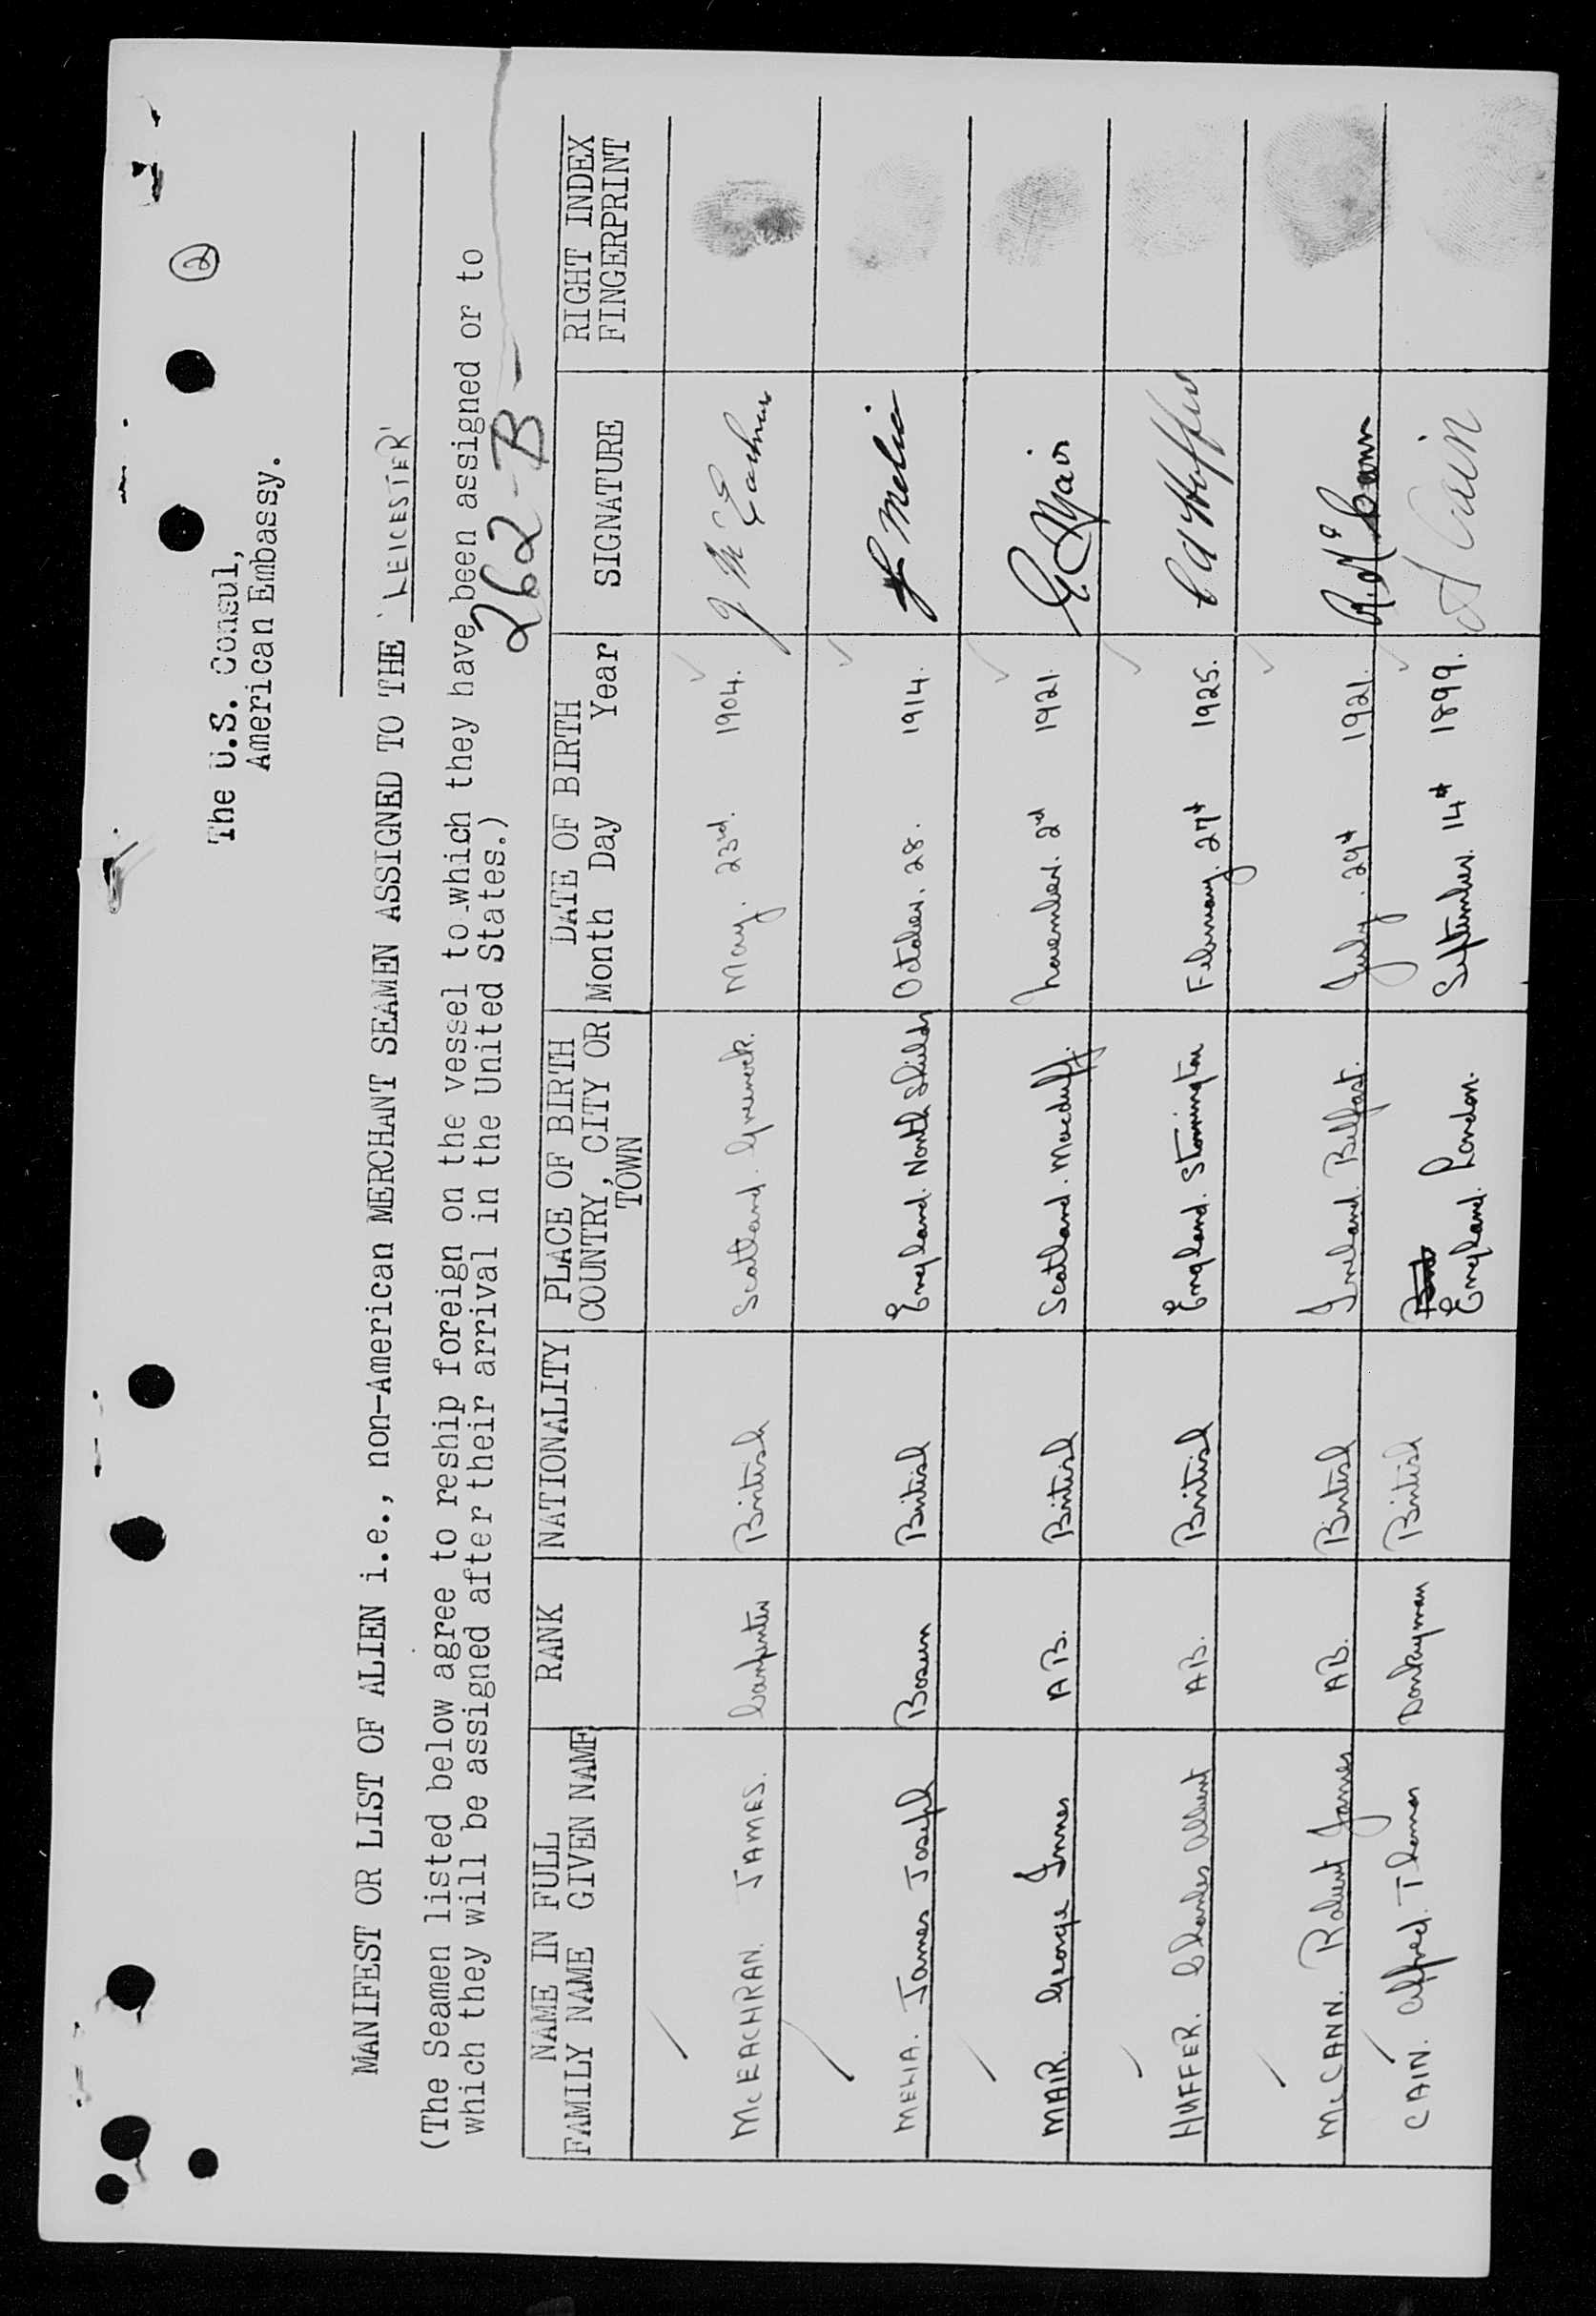 ②
The U.S. Consul,
American Embassy.
MANIFEST OR LIST OF ALIEN i.e., non-American MERCHANT SEAMEN ASSIGNED TO THE 'LEICESTER'
(The Seamen listed below agree to reship foreign on the vessel to which they have been assigned or to
which they will be assigned after their arrival in the United States.)
262-B-
NAME IN FULL FAMILY NAME GIVEN NAME RANK NATIONALITY PLACE OF BIRTH COUNTRY, CITY OR TOWN DATE OF BIRTH Month Day Year SIGNATURE RIGHT INDEX FINGERPRINT
McEACHRAN. JAMES. Carpenter British Scotland. Greenock. May. 23rd. 1904. J McEachran
MELIA. James Joseph Bosun British England. North Shields October. 28. 1914. J Melia
MAIR. George Innes A B. British Scotland. Macduff. November. 2nd 1921. G. I. Mair
HUFFER. Charles Albert A.B. British England. February. 27th 1925. C A Huffer
McCANN. Robert James A.B. British Ireland. Belfast. July. 29th 1921. R. J. McCann
CAIN. Alfred. Thomas Donkeyman British England. London. September. 14th 1899. A Cain